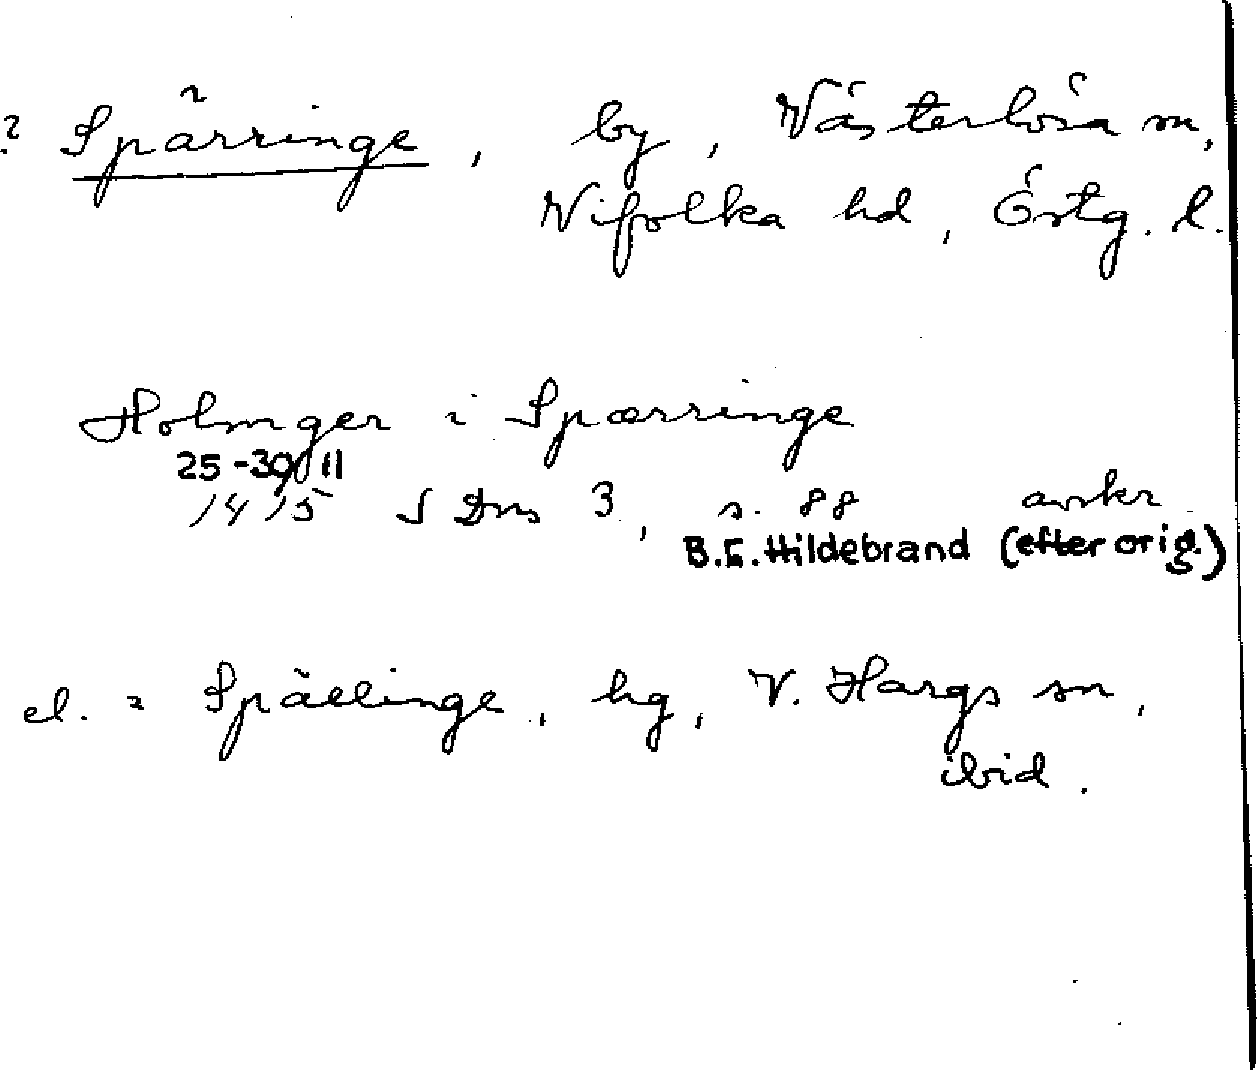 ? Spärringe, by, Västerlösa sn,
Vifolka hd, Östg. l.
Holmger i Spærringe
25-30/11
1415 SDns 3, s. 88 avskr
B.E. Hildebrand (efter orig.)
el. = Spällinge, hg, V. Hargs sn,
ibid.